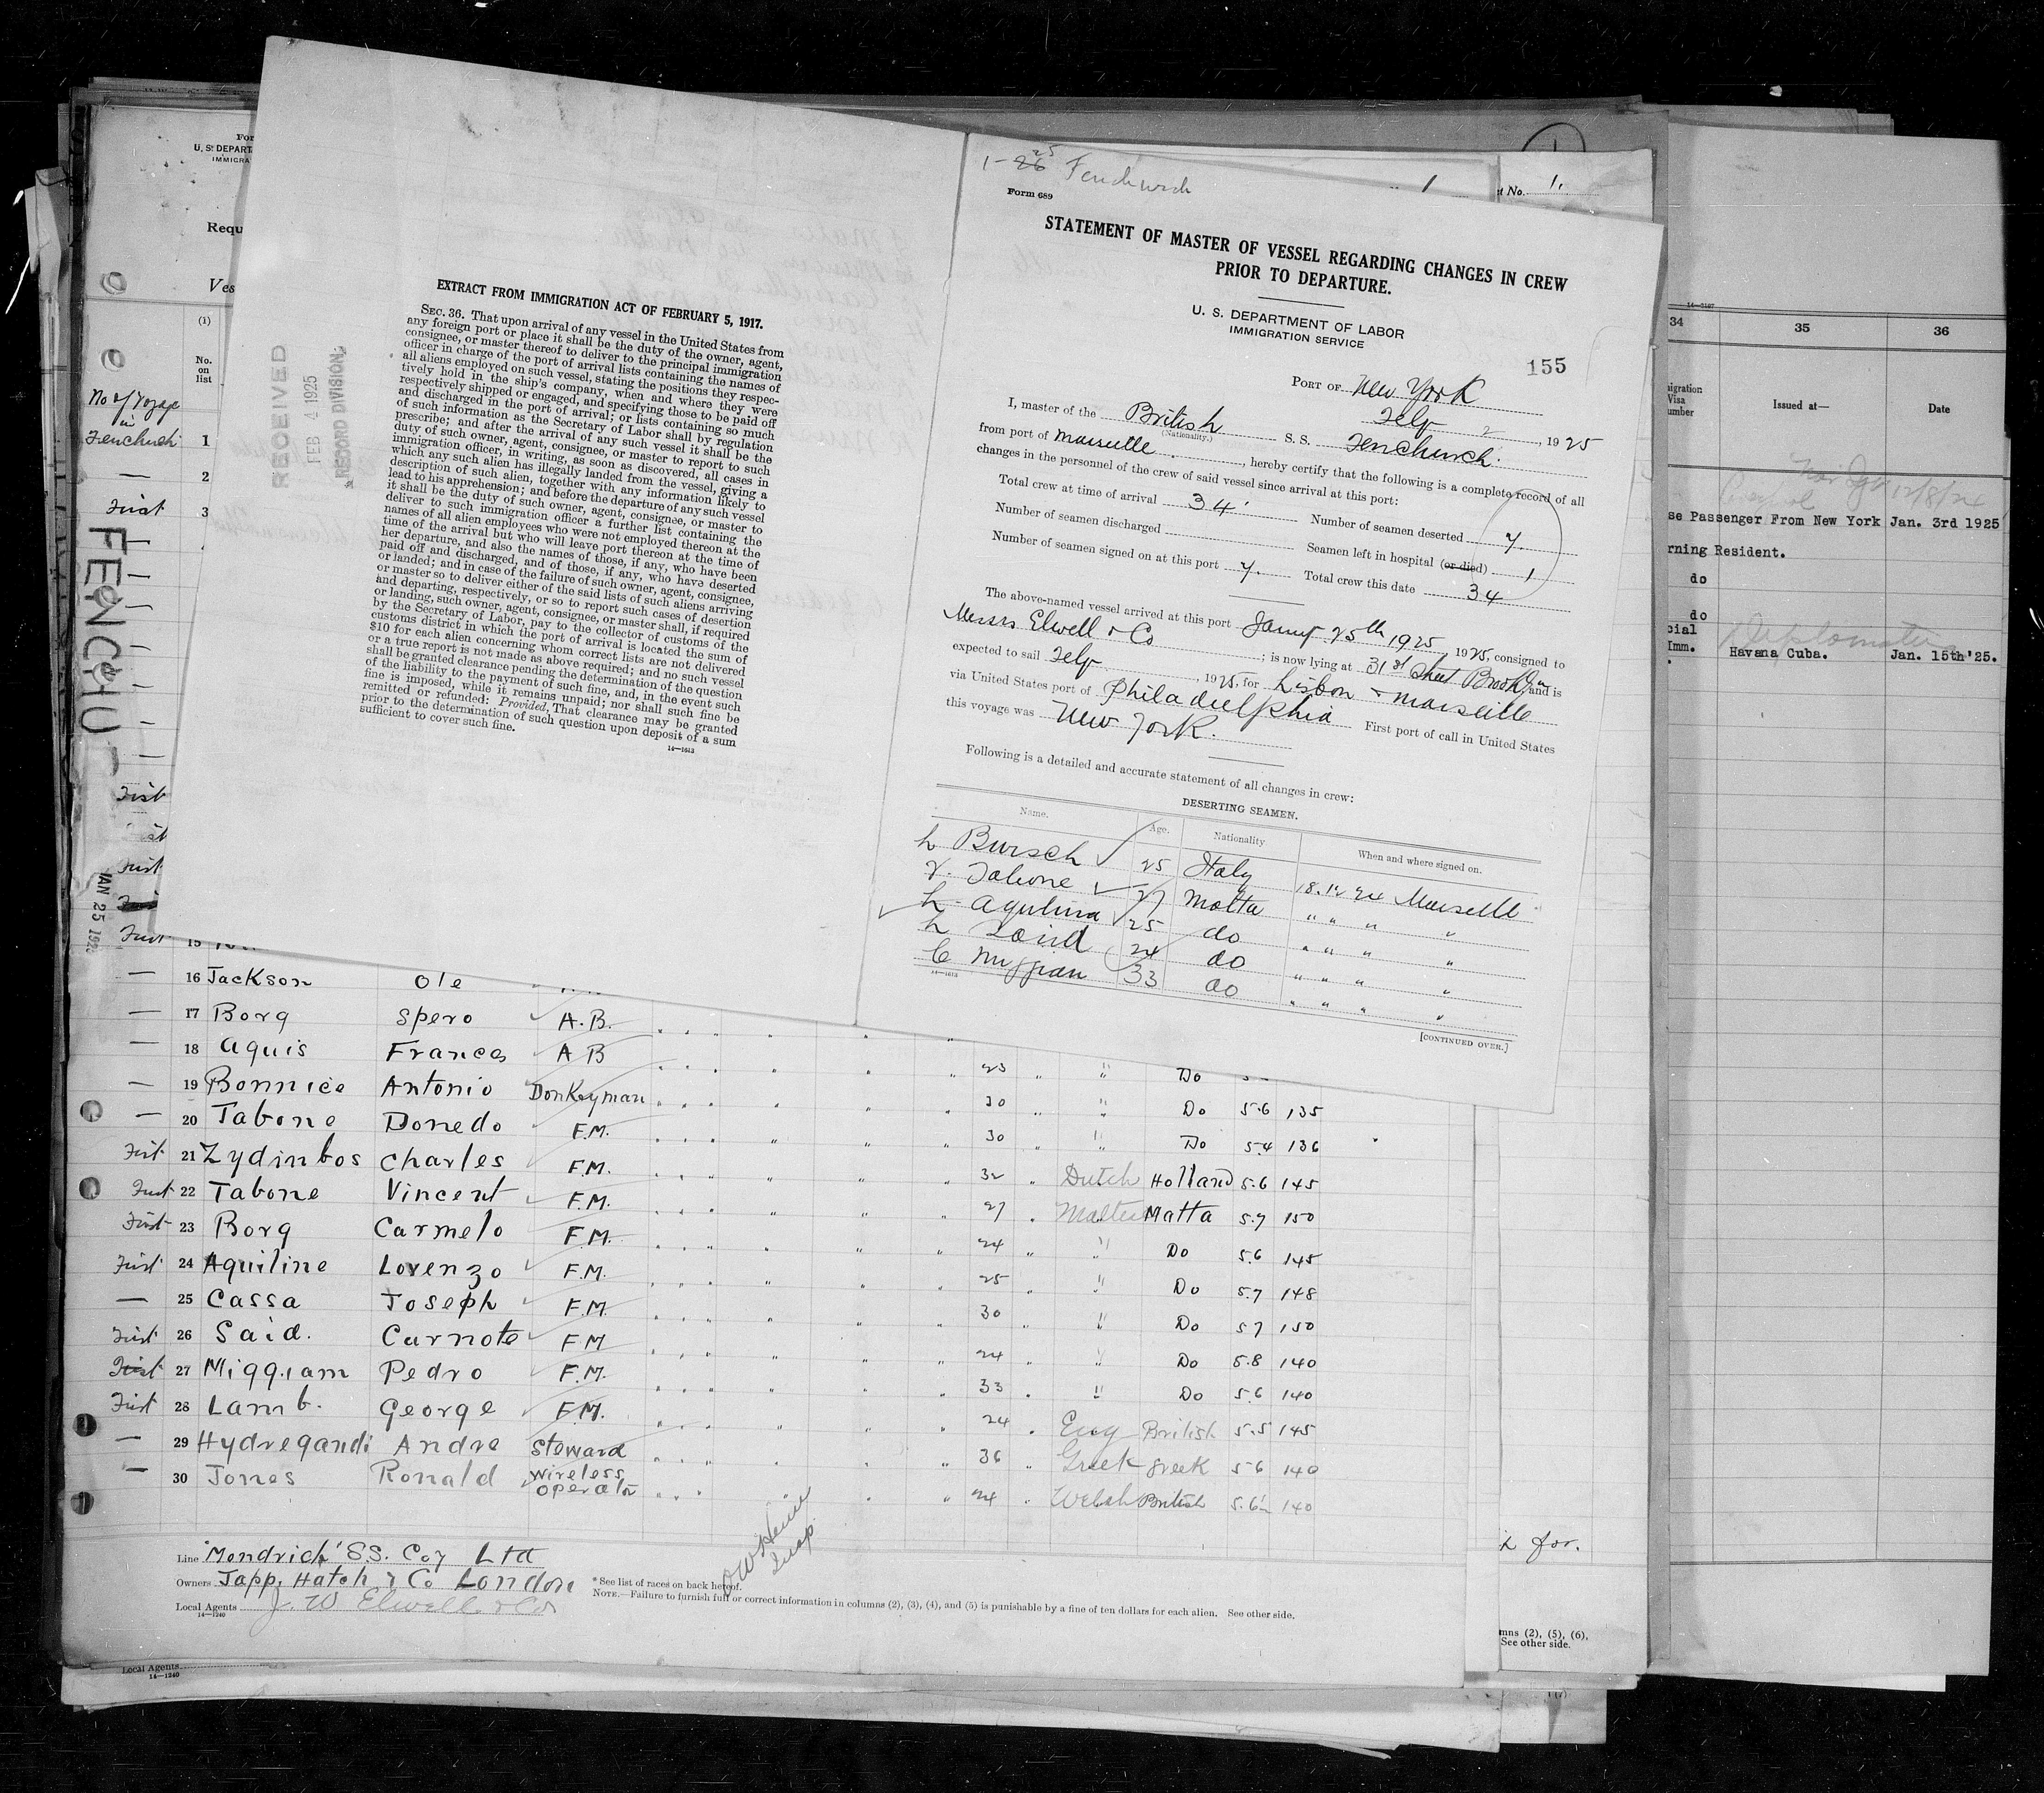 1-26 25 Fenchurch
Form 689
STATEMENT OF MASTER OF VESSEL REGARDING CHANGES IN CREW
PRIOR TO DEPARTURE.
U. S. DEPARTMENT OF LABOR
IMMIGRATION SERVICE
155
PORT OF New York
2, 1925
I, master of the British S. S. Fenchurch
(Nationality.)
from port of Marseille, hereby certify that the following is a complete record of all
changes in the personnel of the crew of said vessel since arrival at this port:
Total crew at time of arrival 34 Number of seamen deserted 7.
Number of seamen discharged Seamen left in hospital (or died) 1
Number of seamen signed on at this port 7. Total crew this date 34
The above-named vessel arrived at this port 25th 1925, 1925, consigned to
Messrs Elwell & Co; is now lying at 31st Street Brooklyn, and is
expected to sail, 1925, for Lisbon & Marseille
via United States port of Philadelphia First port of call in United States
this voyage was New York.
Following is a detailed and accurate statement of all changes in crew:
DESERTING SEAMEN.
Name. Age. Nationality When and where signed on.
Bursch 25 Italy 18.12.24 Marseille
V. Tabone 27 Malta " " " "
25 do " " " "
24 do " " " "
33 do " " " "
14-1613
[CONTINUED OVER.]
EXTRACT FROM IMMIGRATION ACT OF FEBRUARY 5, 1917.
SEC. 36. That upon arrival of any vessel in the United States from
any foreign port or place it shall be the duty of the owner, agent,
consignee, or master thereof to deliver to the principal immigration
officer in charge of the port of arrival lists containing the names of
all aliens employed on such vessel, stating the positions they respec-
tively hold in the ship's company, when and where they were
respectively shipped or engaged, and specifying those to be paid off
and discharged in the port of arrival; or lists containing so much
of such information as the Secretary of Labor shall by regulation
prescribe; and after the arrival of any such vessel it shall be the
duty of such owner, agent, consignee, or master to report to such
immigration officer, in writing, as soon as discovered, all cases in
which any such alien has illegally landed from the vessel, giving a
description of such alien, together with any information likely to
lead to his apprehension; and before the departure of any such vessel
it shall be the duty of such owner, agent, consignee, or master to
deliver to such immigration officer a further list containing the
names of all alien employees who were not employed thereon at the
time of the arrival but who will leave port thereon at the time of
her departure, and also the names of those, if any, who have been
paid off and discharged, and of those, if any, who have deserted
or landed; and in case of the failure of such owner, agent, consignee,
or master so to deliver either of the said lists of such aliens arriving
and departing, respectively, or so to report such cases of desertion
or landing, such owner, agent, consignee, or master shall, if required
by the Secretary of Labor, pay to the collector of customs of the
customs district in which the port of arrival is located the sum of
$10 for each alien concerning whom correct lists are not delivered
or a true report is not made as above required; and no such vessel
shall be granted clearance pending the determination of the question
of the liability to the payment of such fine, and, in the event such
fine is imposed, while it remains unpaid; nor shall such fine be
remitted or refunded: Provided, That clearance may be granted
prior to the determination of such question upon deposit of a sum
sufficient to cover such fine.
14-1613
RECEIVED
FEB 4 1925
RECORD DIVISION
U. S. DEPART
IMMIGRA
Requ
Ves
(1)
No.
on
list
1
2
First 3
FENCHU
JAN 25 192
15
— 16 Jackson Ole
— 17 Borg Spero A.B.
— 18 Aquis Frances A B 23 Do
— 19 Bonnice Antonio Donkeyman 30 " Do 5.6 135
— 20 Tabone Donedo F.M. 30 " Do 5.4 136
First 21 Zydinbos Charles F.M. 32 Dutch Holland 5.6 145
First 22 Tabone Vincent F.M. 27 Maltese Malta 5.7 150
First 23 Borg Carmelo F.M. 24 " Do 5.6 145
First 24 Aquiline Lorenzo F.M. 25 " Do 5.7 148
— 25 Cassa Joseph F.M. 30 " Do 5.7 150
First 26 Said. Carnote F.M 24 " Do 5.8 140
First 27 Miggiam Pedro F.M. 33 " Do 5.6 140
First 28 Lamb. George F.M. 24 Eng British 5.5 145
— 29 Hydregandi Andre Steward 36 Greek Greek 5.6 140
— 30 Jones Ronald Wireless Operator 24 Welsh British 5.6½ 140
Line "Mendrich" S.S. Coy Ltd
Owners Japp, Hatch & Co London
Local Agents J. W Elwell & Co
14-1240
* See list of races on back hereof.
NOTE.—Failure to furnish full or correct information in columns (2), (3), (4), and (5) is punishable by a fine of ten dollars for each alien. See other side.
Local Agents
14-1240
No. 1.
for.
mns (2), (5), (6),
See other side.
14-2197
34 35 36
igration
Visa
umber
Issued at—
Date
se Passenger From New York Jan. 3rd 1925
rning Resident.
do
do
cial
Imm.
Diplomatic
Havana Cuba. Jan. 15th'25.